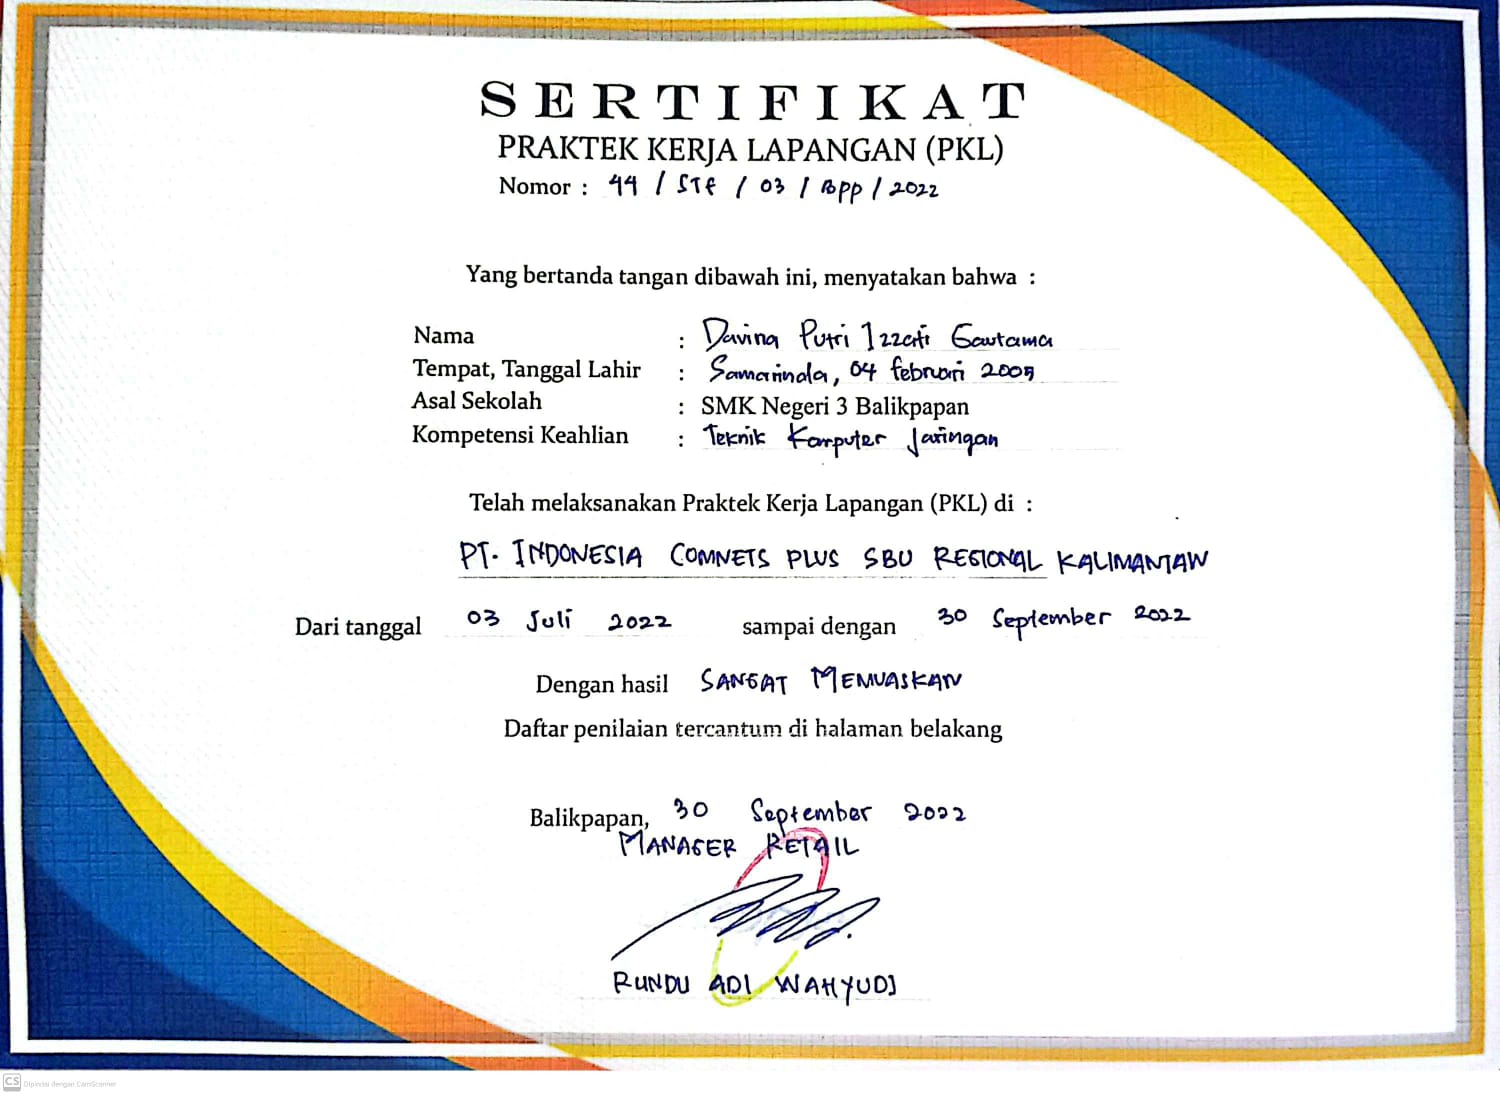 SERTIFIKAT
PRAKTEK KERJA LAPANGAN (PKL)
Nomor : 44 / STF / 03 / BPP / 2022
Yang bertanda tangan dibawah ini, menyatakan bahwa :
Nama : Davina Putri Izzati Gautama
Tempat, Tanggal Lahir : Samarinda, 04 februari 2005
Asal Sekolah : SMK Negeri 3 Balikpapan
Kompetensi Keahlian : Teknik Komputer Jaringan
Telah melaksanakan Praktek Kerja Lapangan (PKL) di :
PT. INDONESIA COMNETS PLUS SBU REGIONAL KALIMANTAN
Dari tanggal 03 Juli 2022 sampai dengan 30 September 2022
Dengan hasil SANGAT MEMUASKAN
Daftar penilaian tercantum di halaman belakang
Balikpapan, 30 September 2022
MANAGER RETAIL
RUNDU ADI WAHYUDI
CS Dipindai dengan CamScanner